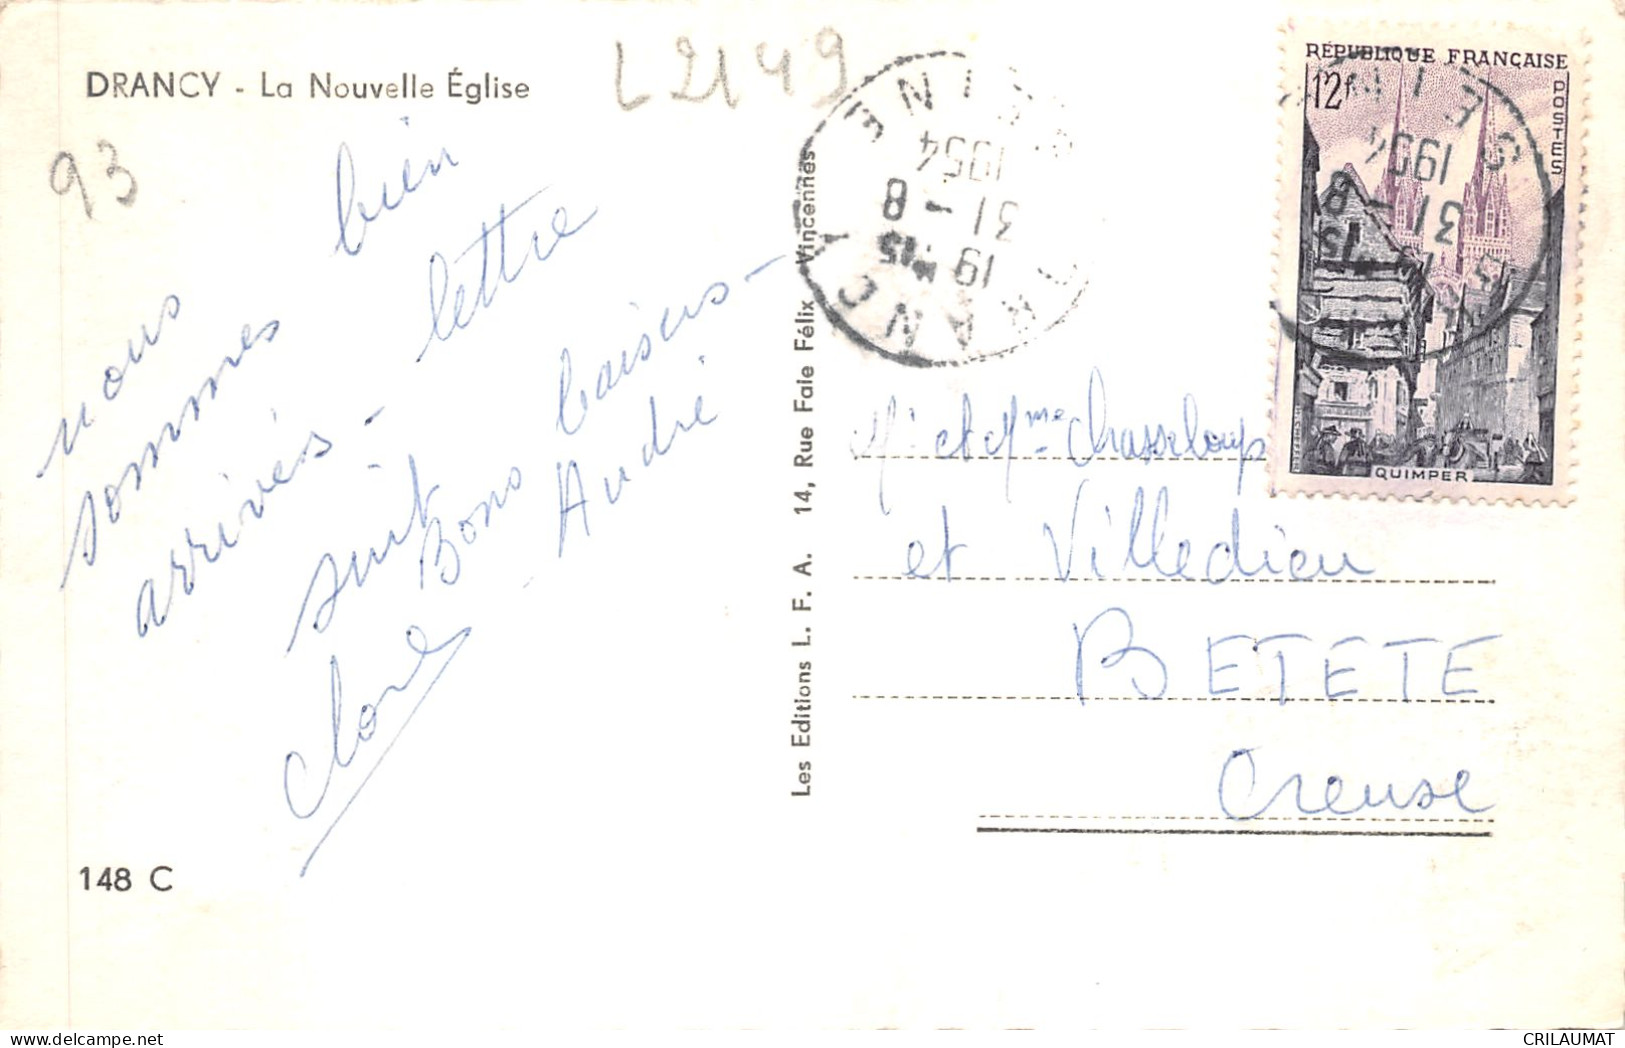 DRANCY - La Nouvelle Église
L2149
93
nous
sommes bien
arrivés -
suit lettre
Bons baisers -
André
148 C
Les Editions L. F. A. 14, Rue Faie Félix Vincennes
DRANCY
19 H 15
31 - 8
1954
SEINE
RÉPUBLIQUE FRANÇAISE
12f
POSTES
QUIMPER
31 - 8
1954
SEINE
Mr et Mme Chasseloup
et Villedieu
BETETE
Creuse
CRILAUMAT